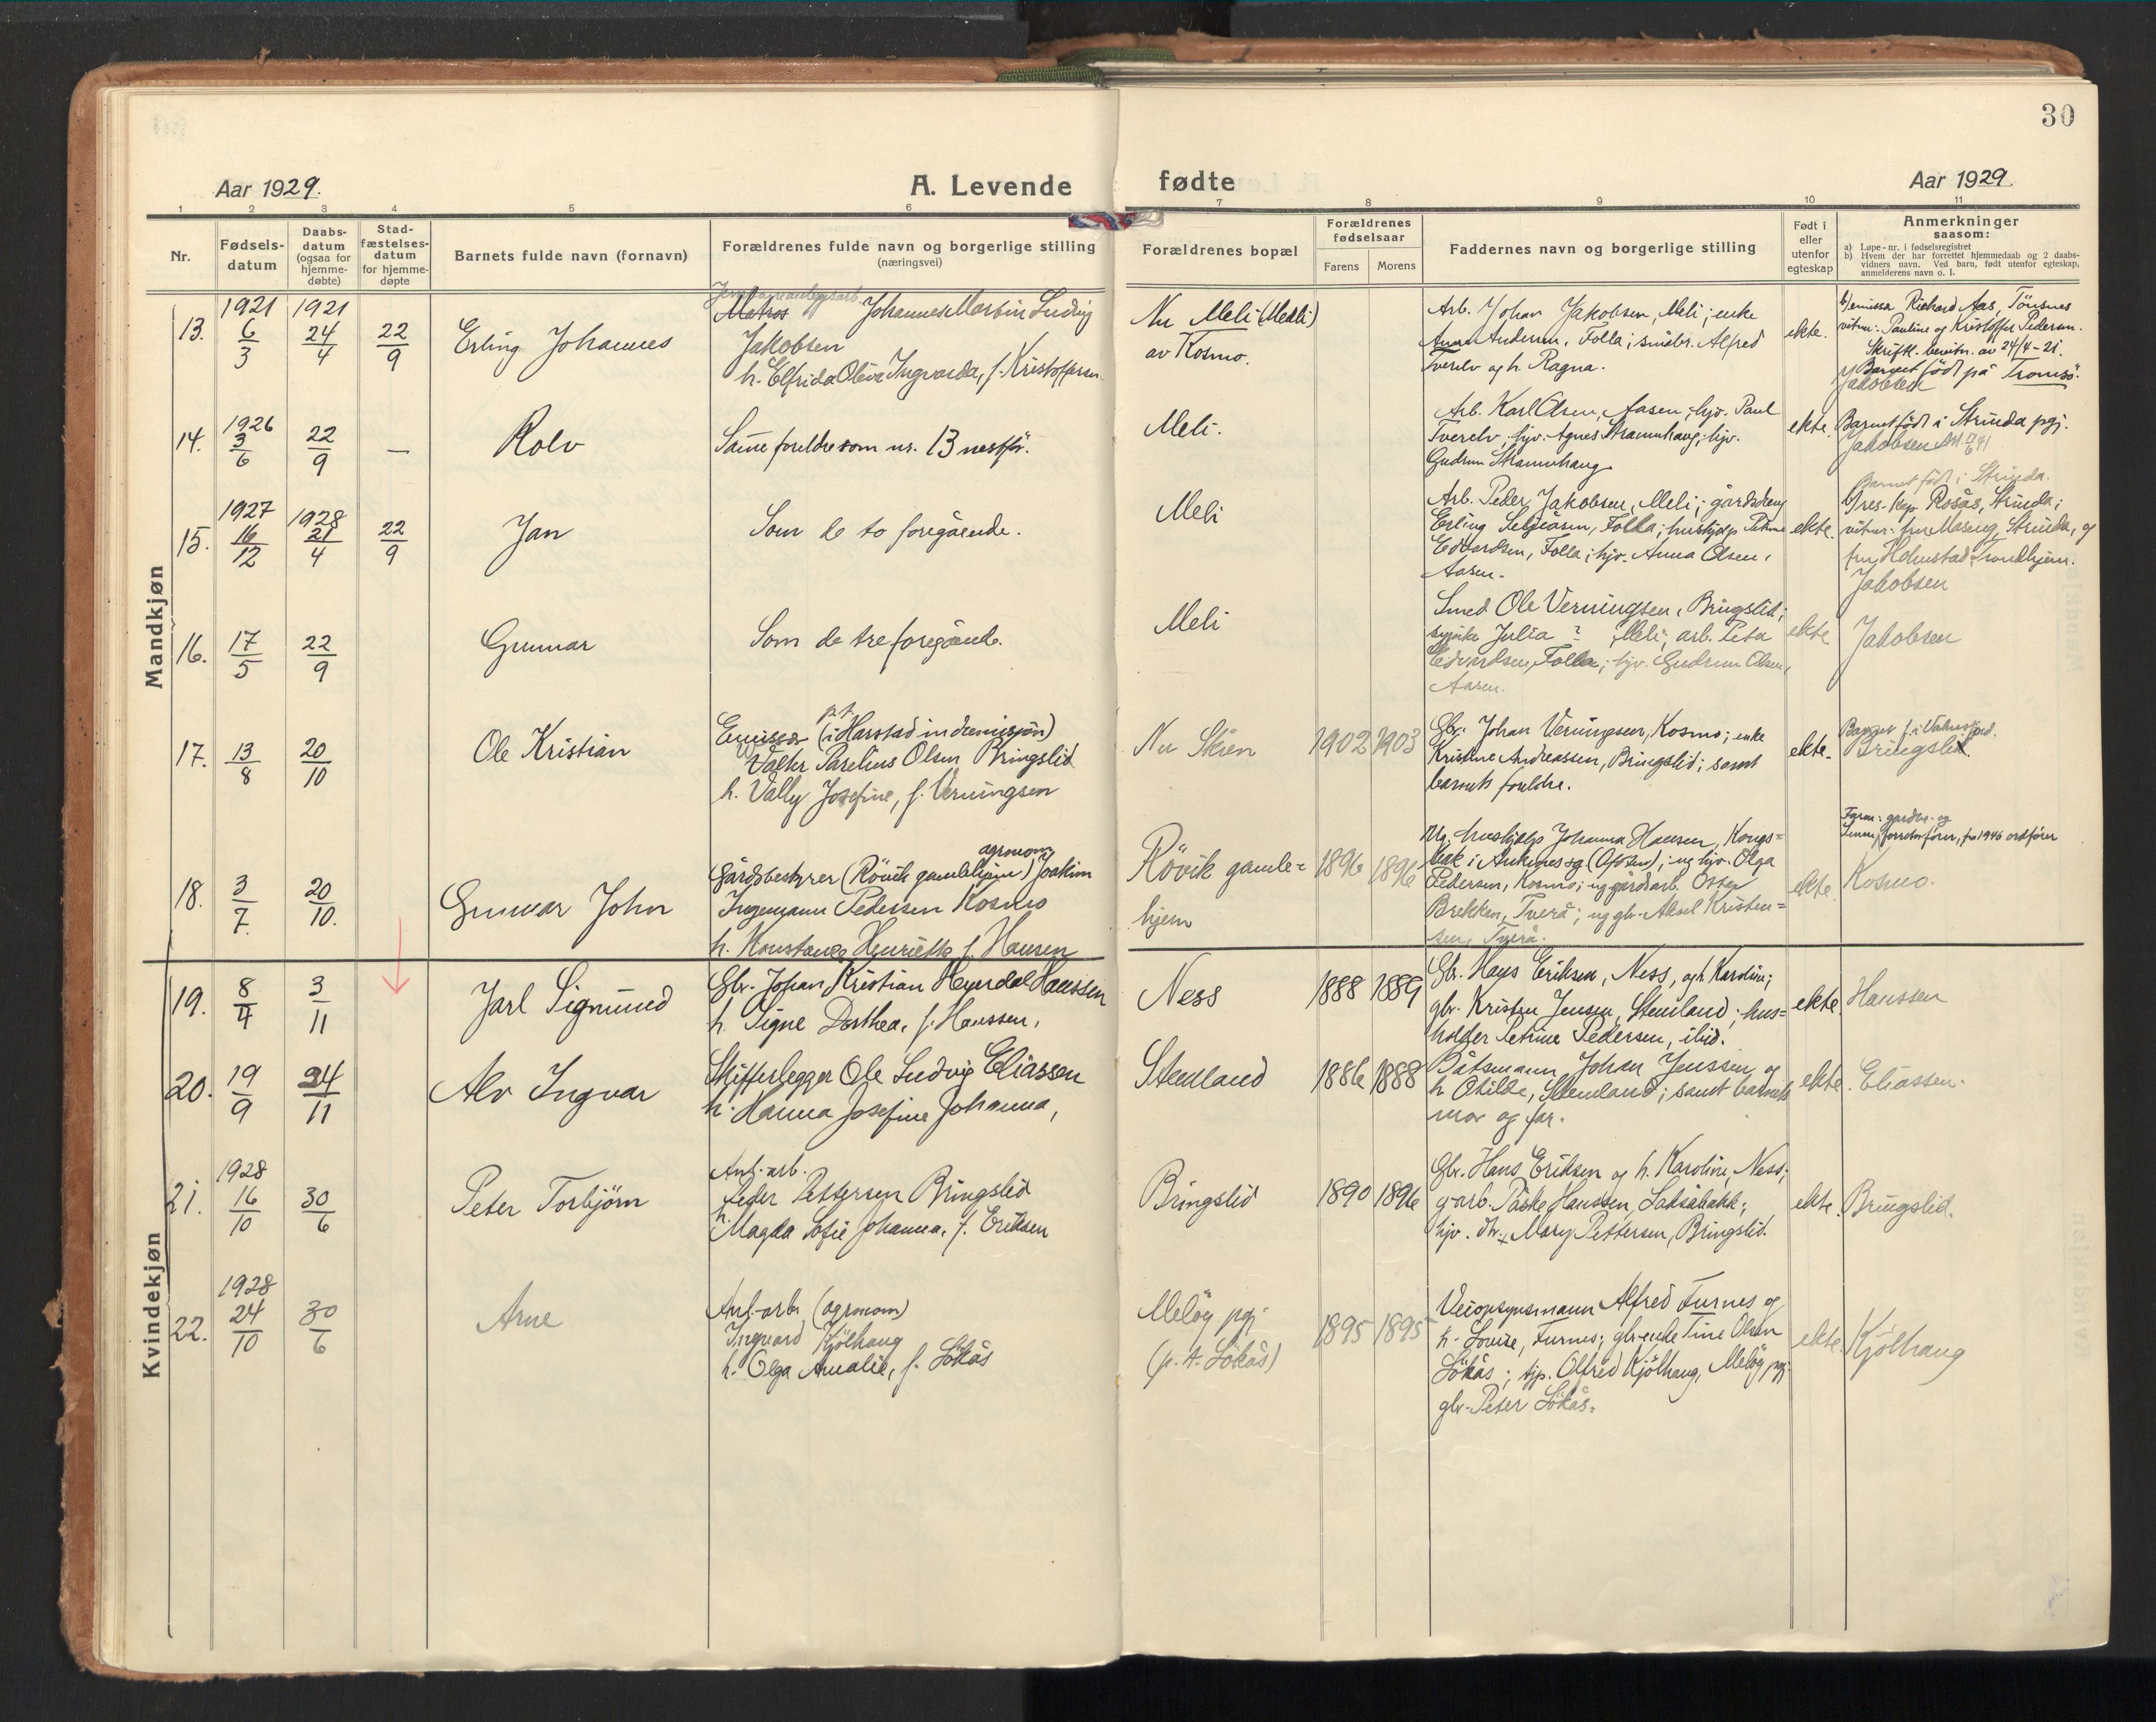 30
Aar 1929.
A. Levende
fødte
Aar 1929.
1 2 3 4 5 6 7 8 9 10 11
Nr.
Fødsels-
datum
Daabs-
datum
(ogsaa for
hjemme-
døbte)
Stad-
fæstelses-
datum
for hjemme-
døpte
Barnets fulde navn (fornavn)
Forældrenes fulde navn og borgerlige stilling
(næringsvei)
Forældrenes bopæl
Forældrenes
fødselsaar
Farens Morens
Faddernes navn og borgerlige stilling
Født i
eller
utenfor
egteskap
Anmerkninger
saasom:
a) Løpe-nr. i fødselsregistret
b) Hvem der har forrettet hjemmedaab og 2 daabs-
vidners navn. Ved barn, født utenfor egteskap,
anmelderens navn o. l.
Mandkjøn
13.
1921
6/3
1921
24/4
22/9
Erling Johannes
Matros Johannes Martin Ludvig
Jakobsen
h. Elfrida Oleva Ingvarda, f. Kristoffersen
Nu Meli (Medli)
av Kosmo.
Arb. Johan Jakobsen, Meli; enke
Anna Andersen, Folla; småbr. Alfred
Tverelv og h. Ragna.
ekte.
b) emissær Richard Aas, Tönsnes
vitner: Pauline og Kristoffer Pedersen.
Skriftl. bevitn. av 24/4-21.
Barnet född på Tromsö.
Jakobsen
14.
1926
3/6
22/9
—
Rolv
Same foreldre som nr. 13 nestfør.
Meli.
Arb. Karl Olsen, Aasen; hjv. Paul
Tverelv, hjv. Agnes Straumhaug; hjv.
Gudrun Straumhaug
ekte.
Barnet född i Strinda pgj.
Jakobsen
15.
1927
16/12
1928
21/4
22/9
Jan
Som de to foregående.
Meli
Arb. Peder Jakobsen, Meli; gårdsdreng
Erling Seljeåsen, Folla; hushjelp Petrine
Edvardsen, Folla; hjv. Anna Olsen,
Aasen.
ekte
Barnet född i Strinda.
b) res. kap. Rosås, Strinda;
vitner: fru Moseng, Strinda, og
fru Holmstad, Trondhjem.
Jakobsen
16.
17/5
22/9
Gunnar
Som de tre foregående.
Meli
Smed Ole Verningsen, Bringslid;
sypike Julia ? Meli; arb. Peta
Edvardsen, Folla; hjv. Gudrun Olsen,
Aasen.
ekte
Jakobsen
17.
13/8
20/10
Ole Kristian
p.t.
Emissær (i Harstad indremisjon)
Valter Parelius Olsen Bringslid
h. Vally Josefine, f. Verningsen
Nu Skien
1902 1903
Gbr. Johan Verningsen, Kosmo; enke
Kristine Andreassen, Bringslid; samt
barnets foreldre.
ekte.
Bringslid.
18.
3/7
20/10.
Gunnar John
agronom
Gårdsbestyrer (Rövik gamlehjem) Joakim
Ingemann Pedersen Kosmo
h. Konstanse Henriette f. Hansen
Rövik gamle=
hjem
1896 1896
Ug. hushjelp Johanna Hansen, Kongs=
bak i Ankenes sg. (Ofoten); ug hjv. Olga
Pedersen, Kosmo; ug gårdsarb. Osser
Brekken, Tverå; ug gbr. Aksel Kristen=
sen, Tverå.
ekte.
Faren: gardbr. og
forretnfører, fra 1946 ordfører
Kosmo.
19.
8/4
3/11
Jarl Sigmund
Gbr. Johan Kristian Heyerdal Hanssen
h. Signe Dorthea, f. Hanssen,
Ness
1888 1889
Gbr. Hans Eriksen, Ness, og h. Karoline;
gbr. Kristen Jensen, Stemland; hus=
holder Petrine Pedersen, ibid.
ekte.
Hanssen
20.
19/9
24/11
Alv Ingvar
Skifferlegger Ole Ludvig Eliassen
h. Hanna Josefine Johanna,
Stemland
1886 1888
Båtsmann Johan Jenssen og
h. Otilde, Stemland; samt barnets
mor og far.
ekte.
Eliassen.
Kvindekjøn
21.
1928
16/10
30/6
Peter Torbjörn
Anl.-arb.
Peder Pettersen Bringslid
h. Magda Sofie Johanna, f. Eriksen
Bringslid
1890 1896
Gbr. Hans Eriksen og h. Karoline, Ness;
g.arb. Påske Hanssen, Laksåbakk;
hjv. dtr. Mary Pettersen, Bringslid.
ekte.
Bringslid.
22.
1928
24/10
30/6
Arne
Anl.-arb. (agronom)
Ingvard Kjölhaug
h. Olga Amalie, f. Lökås
Melöy pgj.
(p.t. Lökås)
1895 1895
Veiopsynsmann Alfred Furnes og
h. Lovise, Furnes; gbr.enke Tine Olsen
Lökås; tjp. Olfred Kjölhaug, Melöy pgj.
gbr. Peter Lökås.
ekte.
Kjölhaug